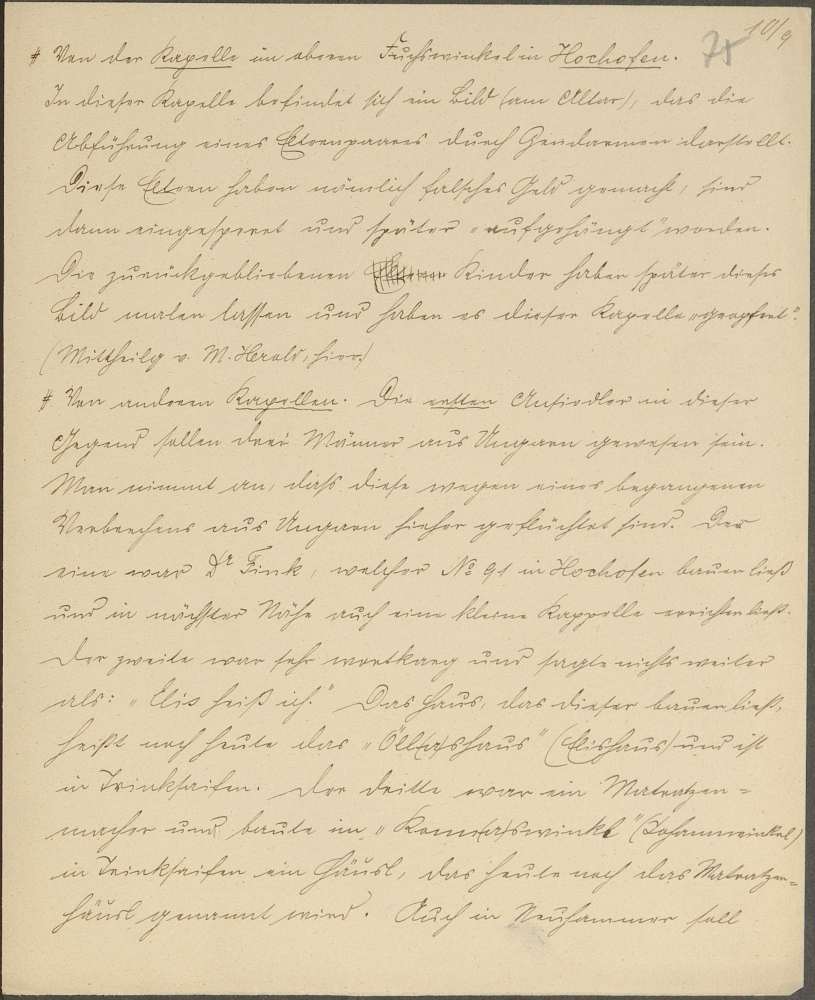 10/9
# Von der Kapelle im oberen Fuchswinkel in Hochofen.
In dieser Kapelle befindet sich ein Bild (am Altar), das die
Abführung eines Elternpaares durch Gendarmen darstellt.
Diese Eltern haben nämlich falsches Geld gemacht, sind
dann eingesperrt und später „aufgehängt" worden.
Die zurückgebliebenen Kinder haben später dieses
Bild malen lassen und haben es dieser Kapelle „geopfert".
(Mittheilg v. M. Herold, hier.)
# Von anderen Kapellen. Die ersten Ansiedler in dieser
Gegend sollen drei Männer aus Ungarn gewesen sein.
Man nimmt an, daß diese wegen eines begangenen
Verbrechens aus Ungarn hieher geflüchtet sind. Der
eine war Dr Fink, welcher No 91 in Hochofen bauen ließ
und in nächster Nähe auch eine kleine Kappelle errichten ließ.
Der zweite war sehr wortkarg und sagte nichts weiter
als: „Elis heiß ich." Das Haus, das dieser bauen ließ,
heißt noch heute das „Öll(a)shaus" (Elishaus) und ist
in Trinksaifen. Der dritte war ein Matratzen=
macher und baute im (Johannwinkel)
in Trinksaifen ein Häusl, das heute noch das Matratzen=
häusl genannt wird. Auch in Neuhammer soll